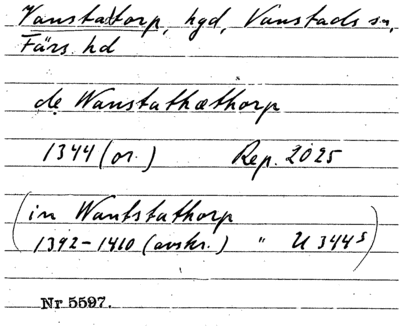 Vanstadtorp, hgd, Vanstads sn,
Färs hd
de Wanstathæthorp
1344 (or.) Rep. 2025
(in Wantstathorp
1392-1410 (avskr.) " U 344 s)
Nr 5597.